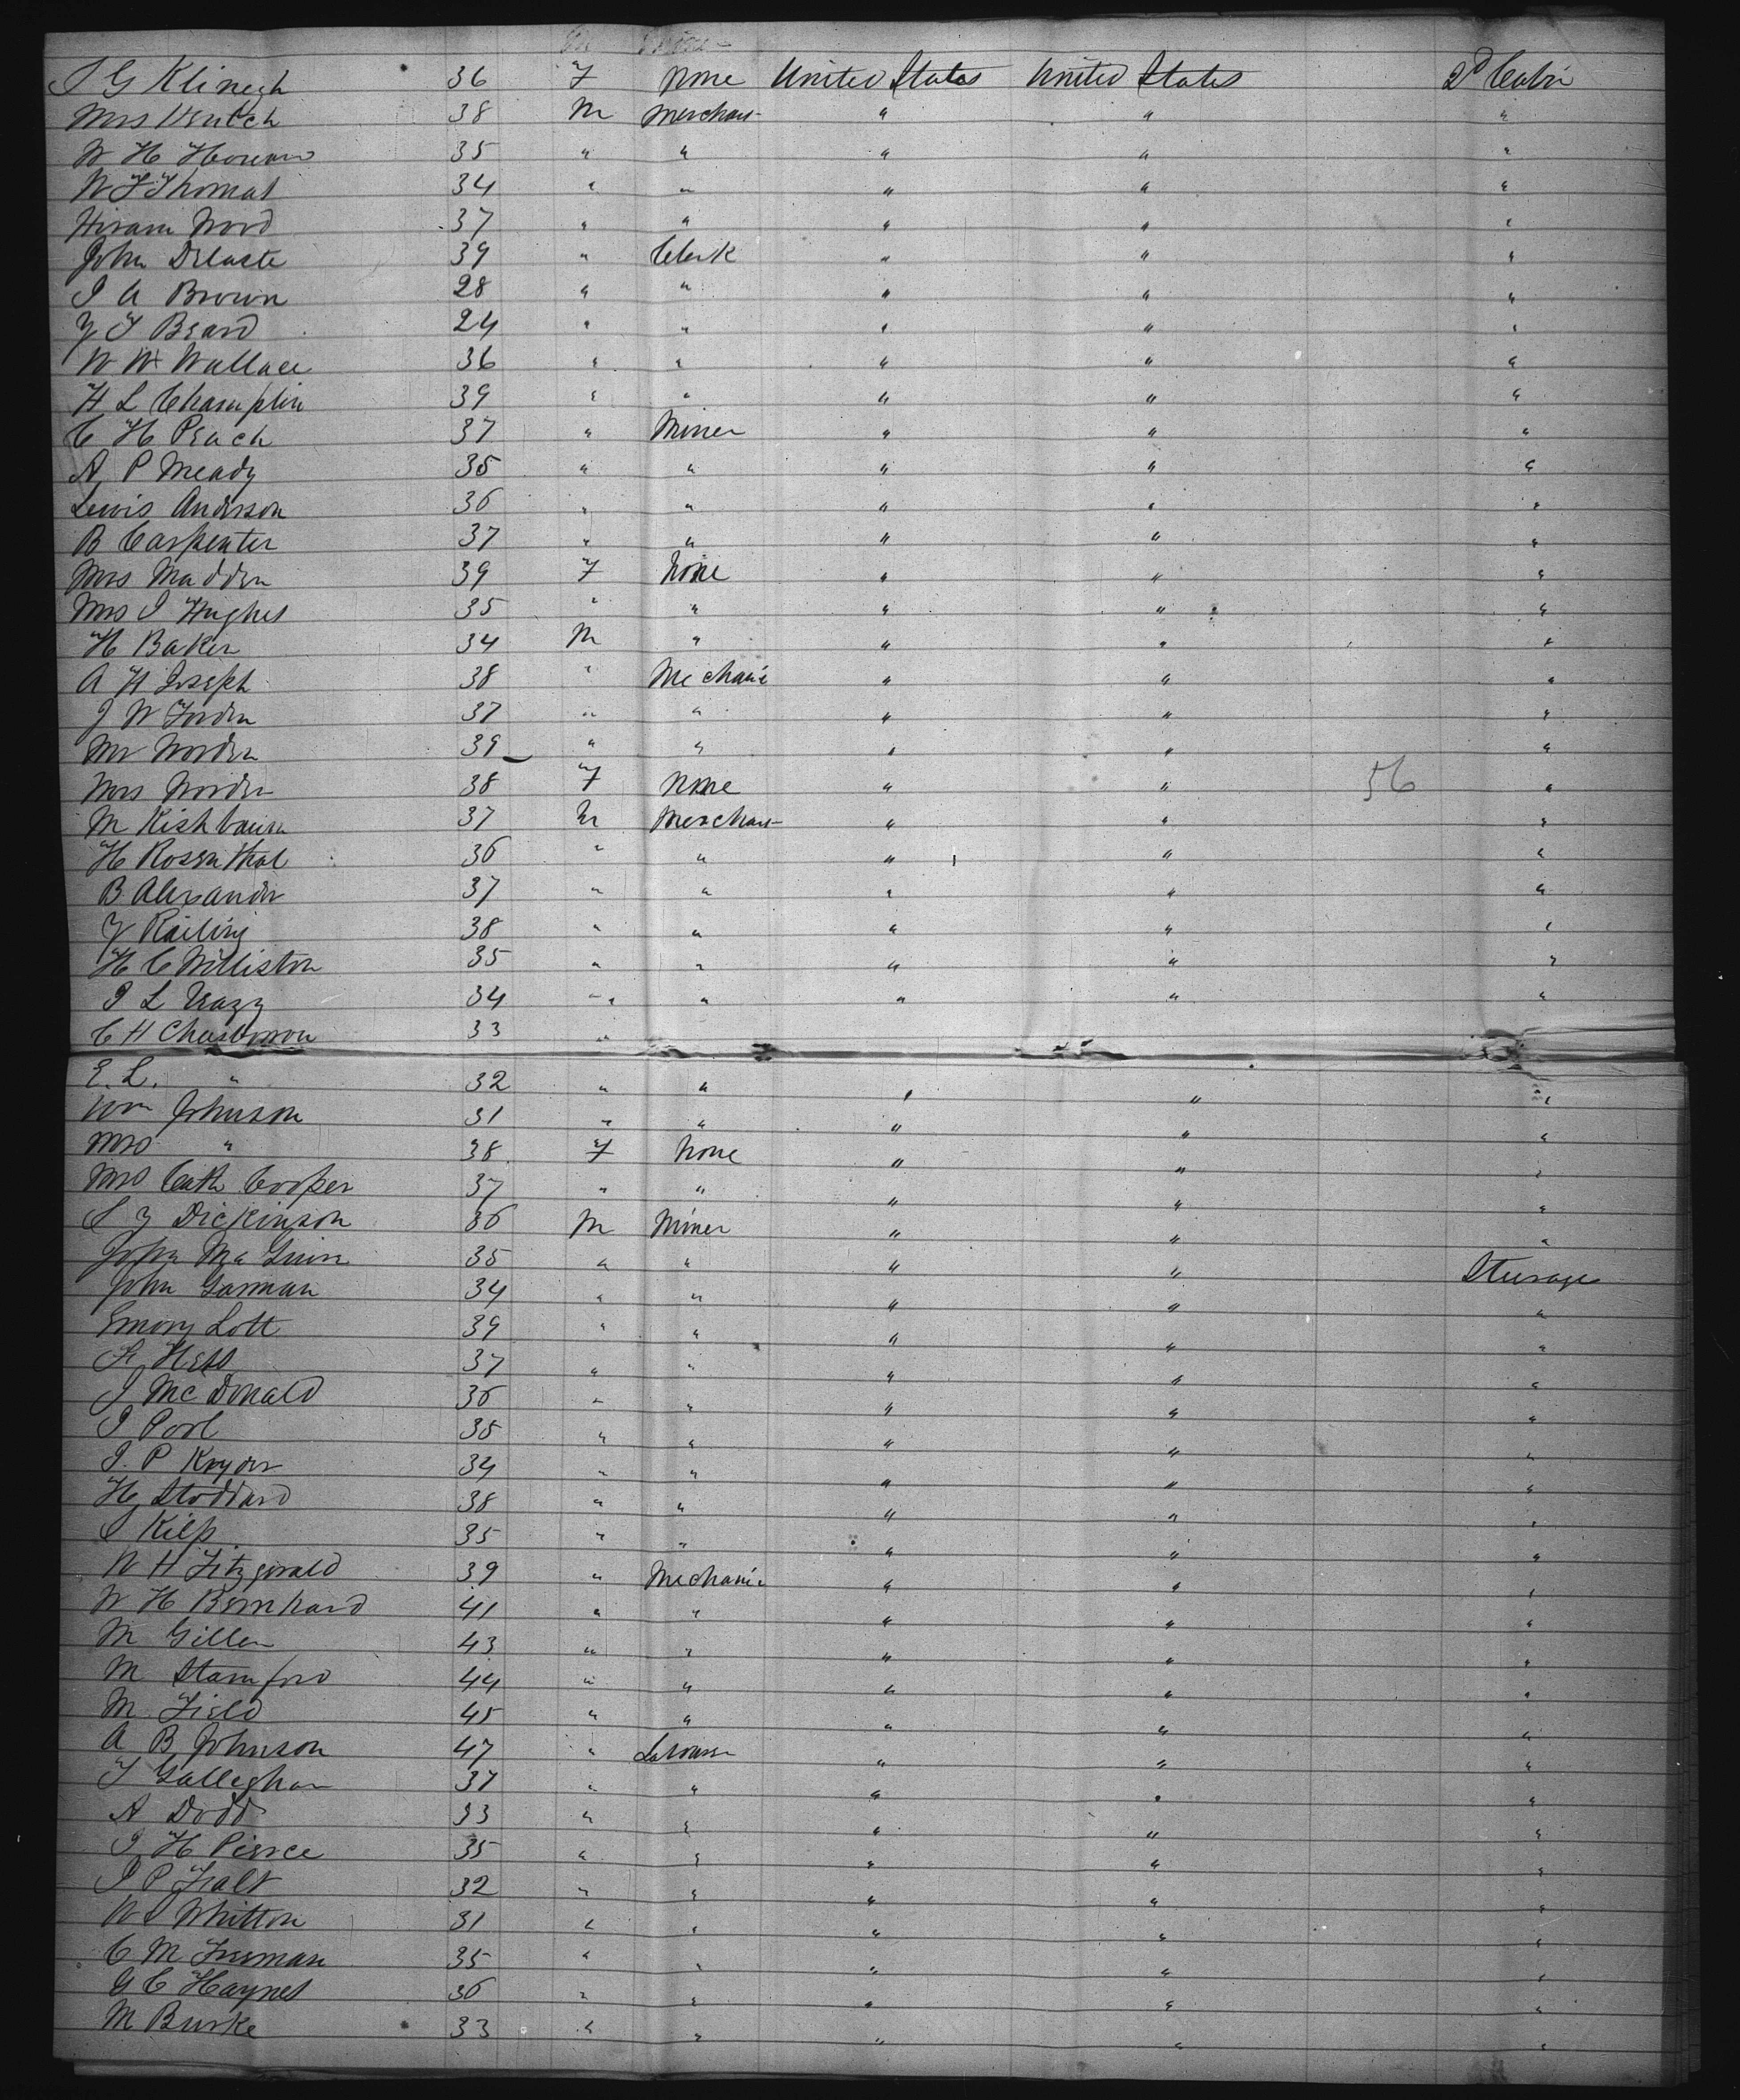 S G Klinegh 36 F None United States United States 2d Cabin
Mrs Hentch 38 M Merchant " " "
W H Horeman 35 " " " " "
W F Thomas 34 " " " " "
Hiram Wood 37 " " " " "
John Delaste 39 " Clerk " " "
J A Brown 28 " " " " "
Y T Beard 24 " " " " "
W W Wallace 36 " " " " "
H L Champlin 39 " " " " "
C H Peach 37 " Miner " " "
A P Meady 35 " " " " "
Lewis Anderson 36 " " " " "
B Carpenter 37 " " " " "
Mrs Madden 39 F None " " "
Mrs J Hughes 35 " " " " "
H Baker 34 M " " " "
A H Joseph 38 " Mechanic " " "
J W Forden 37 " " " " "
Mr Worden 39 " " " " "
Mrs Worden 38 F None " " 56 "
M Kishbaum 37 M Merchant " " "
H Rosenthal 36 " " " " "
B Alexander 37 " " " " "
Y Railing 38 " " " " "
H C Williston 35 " " " " "
J L 34 " " " " "
C H 33 "
E. L. " 32 " " " " "
Wm Johnson 31 " " " " "
Mrs " 38 F None " " "
Mrs Cath Cooper 37 " " " " "
S Y Dickinson 36 M Miner " " "
John McGuinn 35 " " " " Steerage
John Garman 34 " " " " "
Emory Lott 39 " " " " "
A Hess 37 " " " " "
J McDonald 36 " " " " "
J Pool 35 " " " " "
J. P Kryder 34 " " " " "
H Stoddard 38 " " " " "
S Kilp 35 " " " " "
W H Fitzgerald 39 " Mechanic " " "
W H Bernhard 41 " " " " "
M Gillen 43 " " " " "
M Stamford 44 " " " " "
M Field 45 " " " " "
A B Johnson 47 " Labourer " " "
T Galleghan 37 " " " " "
A Dodd 33 " " " " "
J H Pierce 35 " " " " "
J P Fralt 32 " " " " "
W S Whitton 31 " " " " "
C M Freeman 35 " " " " "
G C Haynes 36 " " " " "
M Burke 33 " " " " "